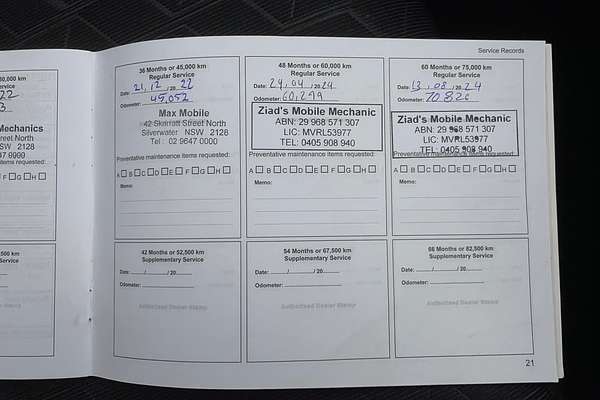 Service Records
36 Months or 45,000 km
Regular Service
Date: 21, 12 / 20 22
Odometer: 45,052
Max Mobile
42 Skarratt Street North
Silverwater NSW 2128
Tel : 02 9647 0000
Preventative maintenance items requested:
A B C D E F G H
Memo:
48 Months or 60,000 km
Regular Service
Date: 24, 04 / 20 24
Odometer: 60,299
Ziad's Mobile Mechanic
ABN: 29 968 571 307
LIC: MVRL53977
TEL: 0405 908 940
Preventative maintenance items requested:
A B C D E F G H
Memo:
60 Months or 75,000 km
Regular Service
Date: 13, 08 / 20 24
Odometer: 70,826
Ziad's Mobile Mechanic
ABN: 29 968 571 307
LIC: MVRL53977
TEL: 0405 908 940
Preventative maintenance items requested:
A B C D E F G H
Memo:
42 Months or 52,500 km
Supplementary Service
Date: / / 20
Odometer:
Authorised Dealer Stamp
54 Months or 67,500 km
Supplementary Service
Date: / / 20
Odometer:
Authorised Dealer Stamp
66 Months or 82,500 km
Supplementary Service
Date: / / 20
Odometer:
Authorised Dealer Stamp
21